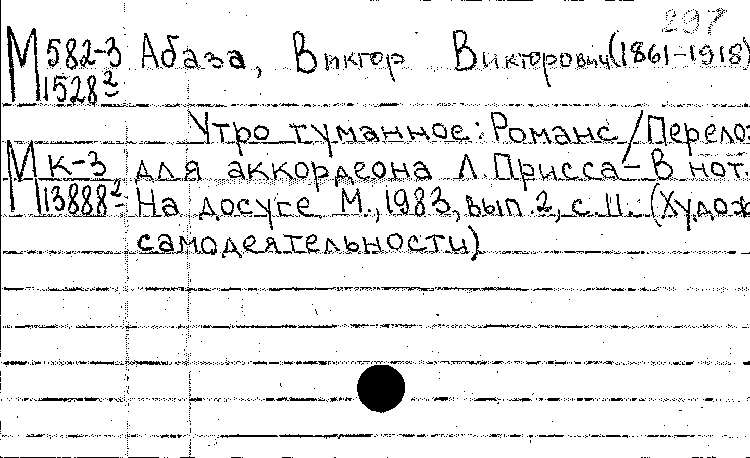 297
М 582-3 Абаза, Виктор Викторович (1861-1918)
1528²
Утро туманное: Романс / Перелож
М К-3 для аккордеона Л. Присса - В нот.
13888² На досуге М., 1983, вып. 2, с. 11. (Худож
самодеятельности)